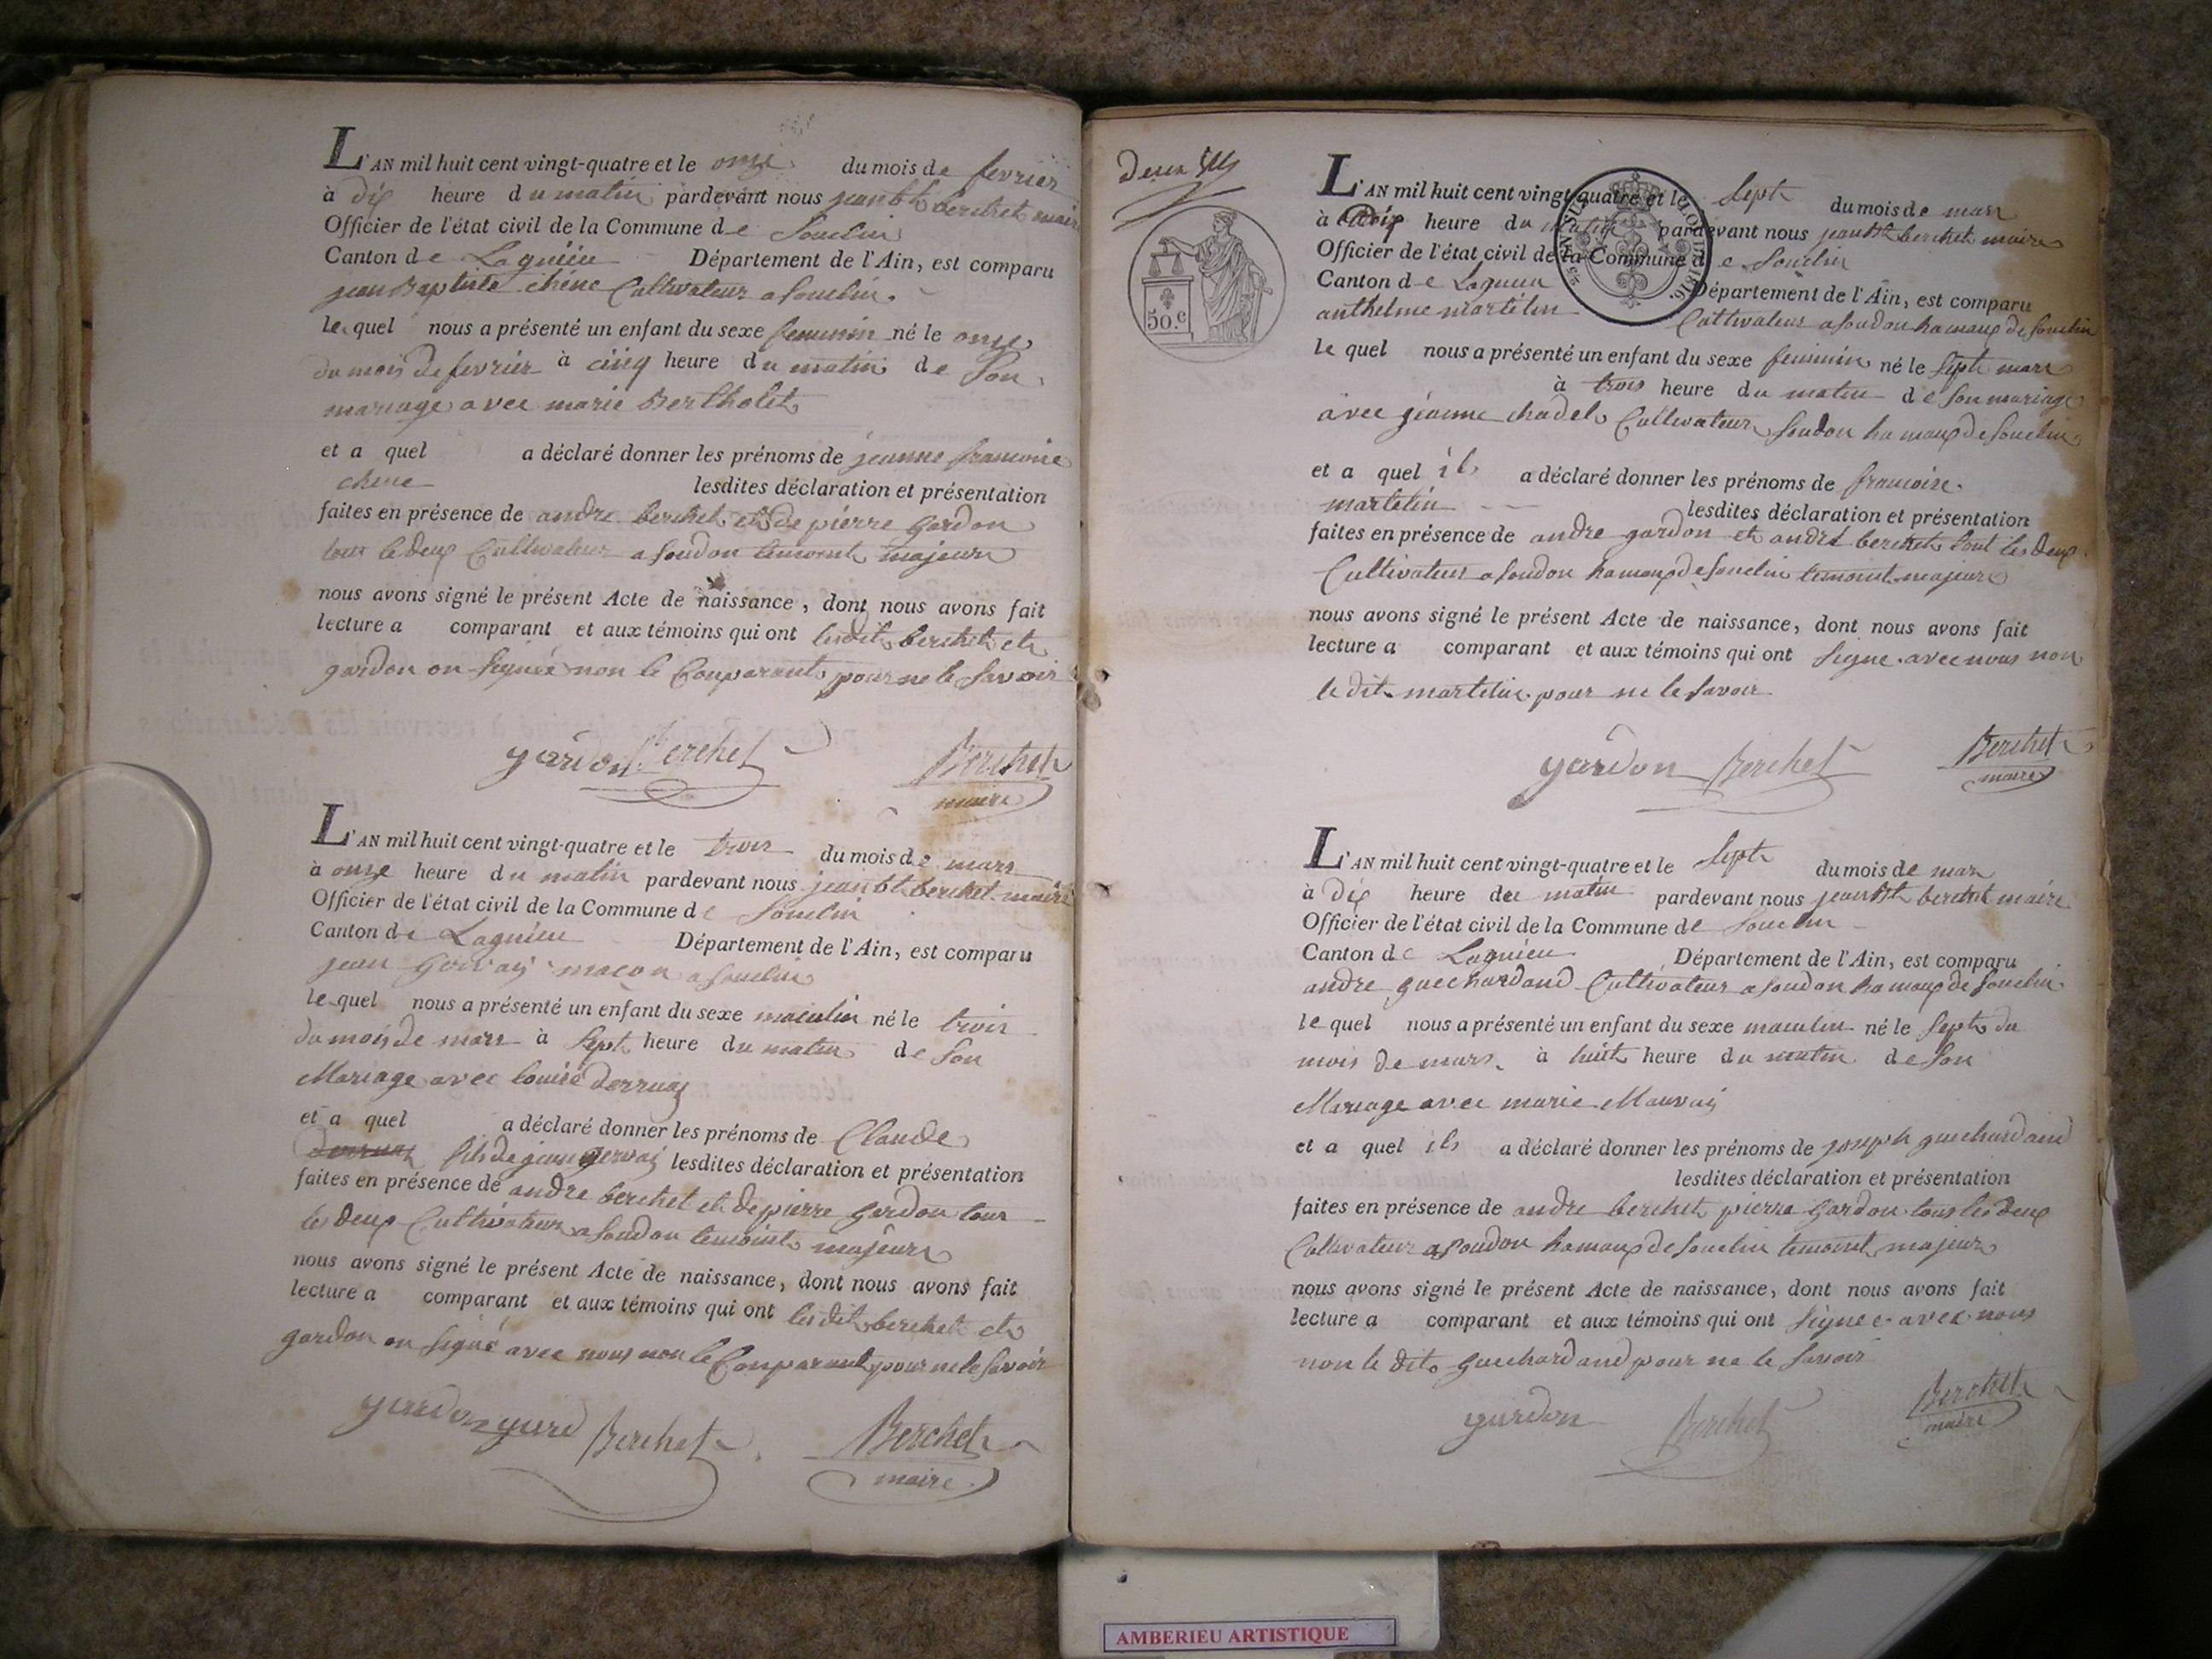 L'AN mil huit cent vingt-quatre et le onze du mois de fevrier
à dix heure du matin pardevant nous jean bte berchet maire
Officier de l'état civil de la Commune de Souclin
Canton de Lagnieu Département de l'Ain, est comparu
jean Baptiste chéne Cultivateur a souclin.
le quel nous a présenté un enfant du sexe feminin né le onze
du mois de fevrier à cinq heure du matin de son
mariage avec marie Bertholet
et a quel a déclaré donner les prénoms de jeanne francoise
chene lesdites déclaration et présentation
faites en présence de andre berchet et de pierre gardon
tout le deux Cultivateur a soudon temoint majeurs
nous avons signé le présent Acte de naissance, dont nous avons fait
lecture a comparant et aux témoins qui ont lesdit berchet et
gardon on signée non le Comparant pour ne le savoir
gardon Berchet Berchet
maire
L'AN mil huit cent vingt-quatre et le trois du mois de mars
à onze heure du matin pardevant nous jean bte berchet maire
Officier de l'état civil de la Commune de Souclin
Canton de Lagnieu Département de l'Ain, est comparu
jean gervais maçon a souclin
le quel nous a présenté un enfant du sexe maculin né le trois
du mois de mars à sept heure du matin de son
Mariage avec louise derruaz
et a quel a déclaré donner les prénoms de Claude
fils de jean gervais lesdites déclaration et présentation
faites en présence de andre berchet et de pierre gardon tous
les deux Cultivateur a soudon temoint majeurs
nous avons signé le présent Acte de naissance, dont nous avons fait
lecture a comparant et aux témoins qui ont les dit berchet et
gardon on signé avec nous non le Comparant pour ne le savoir
gardon Berchet Berchet
maire
Deux
50.c
L'AN mil huit cent vingt-quatre et le sept du mois de mars
à heure du matin pardevant nous jean bte berchet maire
Officier de l'état civil de la Commune de Souclin
Canton de Lagnieu Département de l'Ain, est comparu
anthelme martelin Cultivateur a soudon hamaux de souclin
le quel nous a présenté un enfant du sexe feminin né le sept mars
à trois heure du matin de son mariage
avec jeanne chadel Cultivateur soudon hamaux de souclin
et a quel il a déclaré donner les prénoms de francoise
martelin lesdites déclaration et présentation
faites en présence de andre gardon et andré berchet tout les deux
Cultivateur a soudon hamaux de souclin temoint majeurs
nous avons signé le présent Acte de naissance, dont nous avons fait
lecture a comparant et aux témoins qui ont signe avec nous non
le dit martelin pour ne le savoir
gardon Berchet Berchet
maire
L'AN mil huit cent vingt-quatre et le sept du mois de mars
à dix heure du matin pardevant nous jean bte berchet maire
Officier de l'état civil de la Commune de Souclin
Canton de Lagnieu Département de l'Ain, est comparu
andre guechardand Cultivateur a soudon hamaux de souclin
le quel nous a présenté un enfant du sexe maculin né le sept du
mois de mars à huit heure du matin de son
Mariage avec marie Mauvais
et a quel ils a déclaré donner les prénoms de joseph guechardand
lesdites déclaration et présentation
faites en présence de andre berchet pierre gardon tous les deux
Cultivateur a soudon hamaux de souclin temoint majeurs
nous avons signé le présent Acte de naissance, dont nous avons fait
lecture a comparant et aux témoins qui ont signee avec nous
non le dit guechardand pour ne le savoir
gardon Berchet Berchet
maire
AMBERIEU ARTISTIQUE